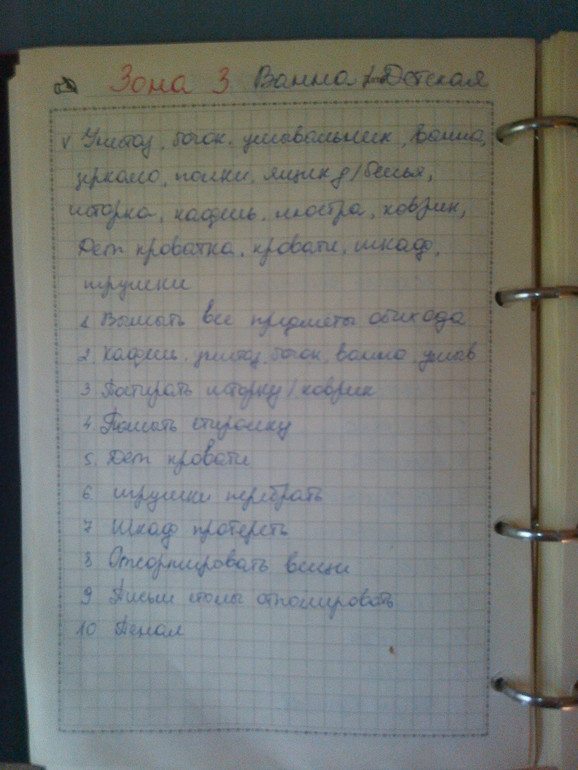 Зона 3 Ванна / Детская
v Унитаз, бочок, умывальник, Ванна,
зеркало, полки, ящик д/белья,
шторка, кафель, люстра, коврик,
Дет кроватка, кровати, шкаф,
игрушки
1 Вымыть все предметы обихода
2 Кафель, унитаз, бочок, ванна умыв
3 Постирать шторку/коврик
4 Помыть стиралку
5. Дет кровати
6 игрушки перебрать
7 Шкаф протереть
8 Отсортировать вещи
9 Письм столы отполировать
10 Пенал